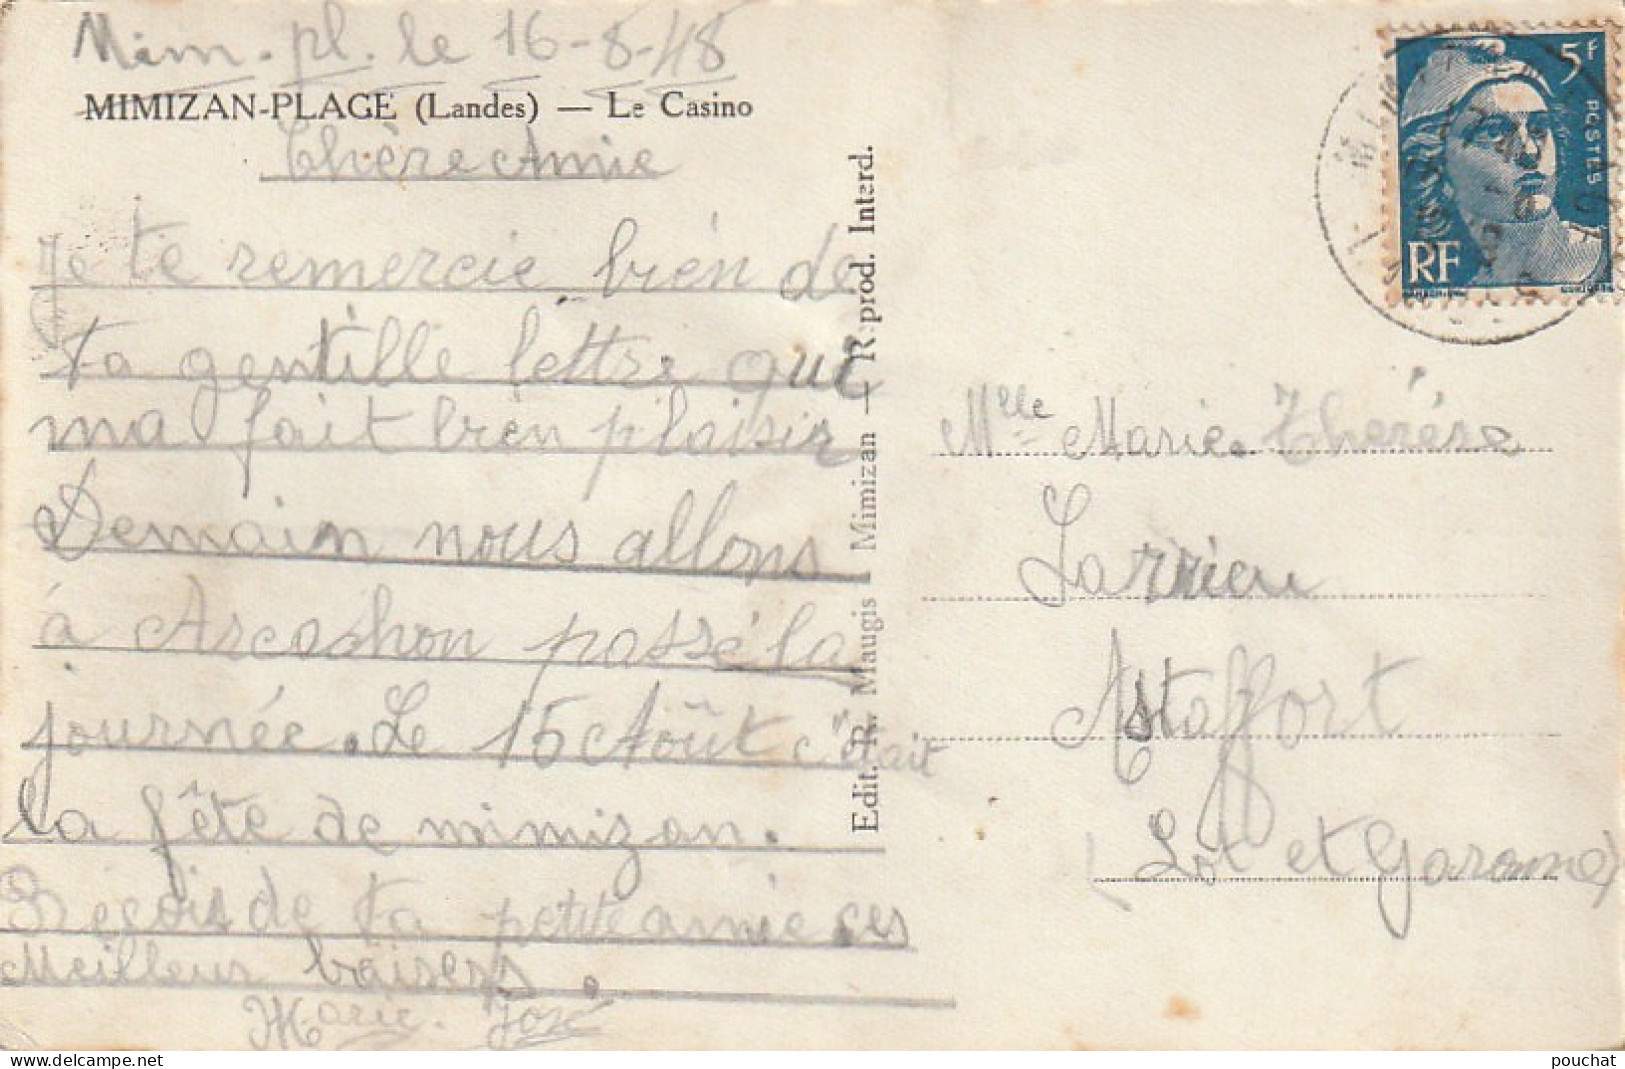 Mim. pl. le 16-8-48
MIMIZAN-PLAGE (Landes) — Le Casino
Chère Amie
Je te remercie bien de
ta gentille lettre qui
ma fait bien plaisir
Demain nous allons
à Arcachon passé la
journée. Le 15 Août c'était
la fête de mimizan.
Reçois de ta petite amie ses
Meilleur baisers.
Marie. José
Edit. R. Maugis Mimizan — Reprod. Interd.
5F
POSTES
RF
Mlle Marie. Thérése
Larrieu
Astaffort
(Lot et Garonne)
pouchat